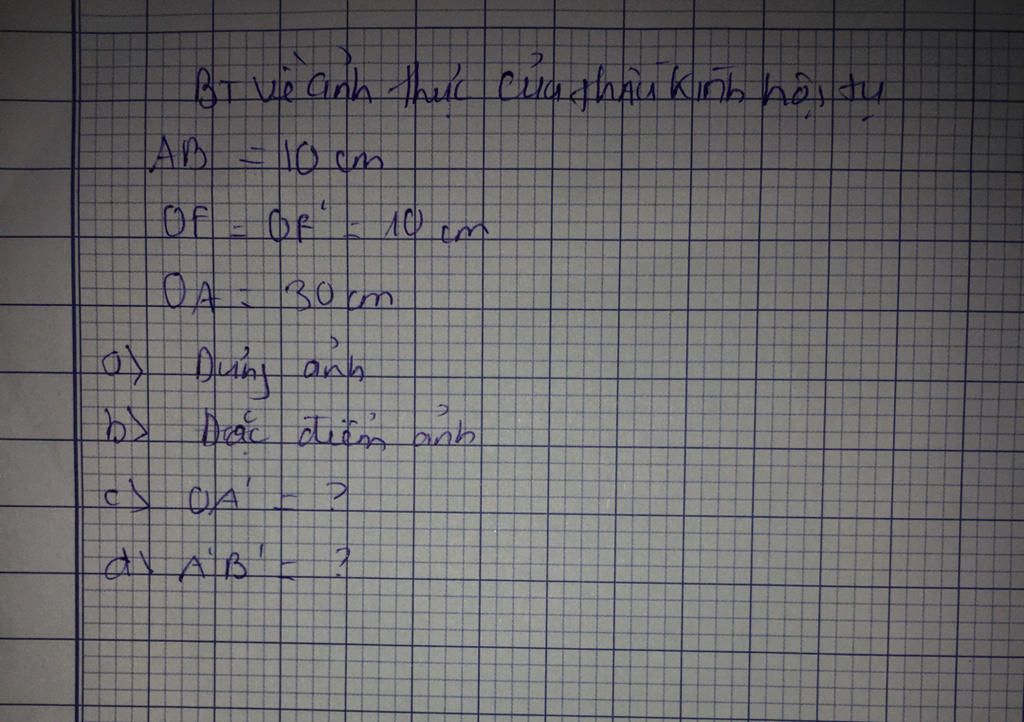 BT về ảnh thực của thấu kính hội tụ
AB = 10 cm
OF = OF' = 10 cm
OA = 30 cm
a) Dựng ảnh
b) Đặc điểm ảnh
c) OA' = ?
d) A'B' = ?